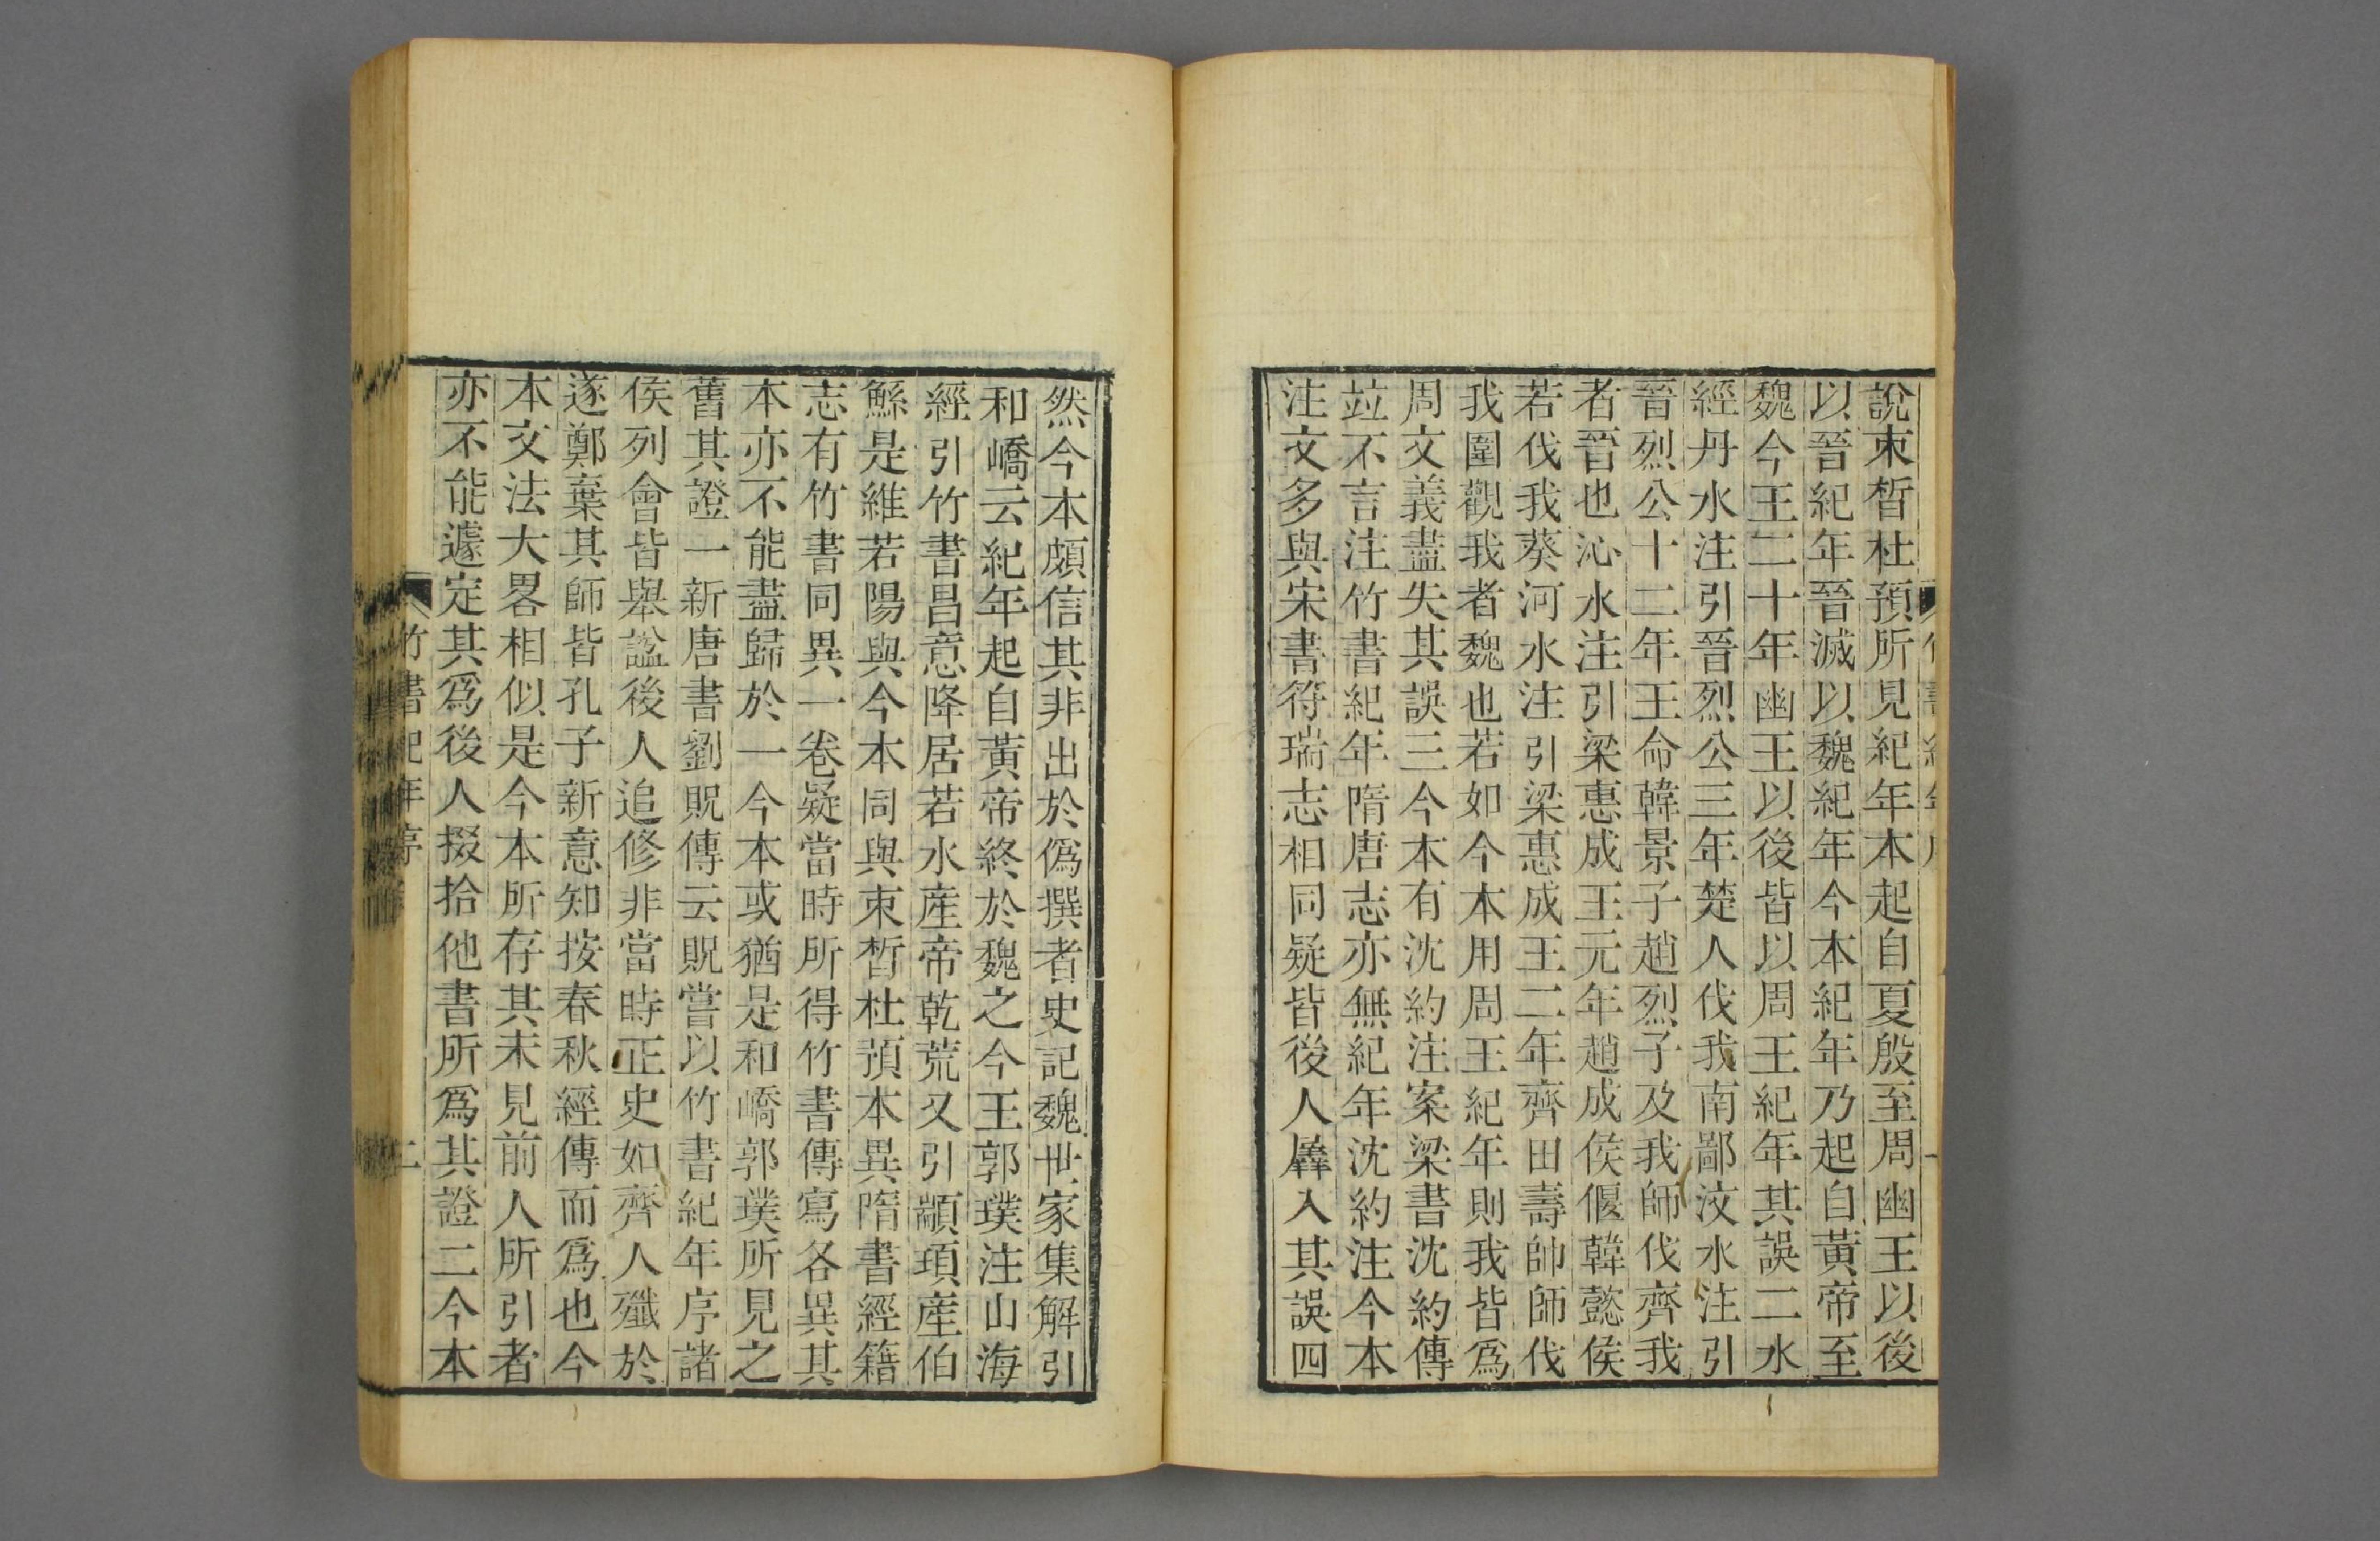 說束皙杜預所見紀年本起自夏殷至周幽王以後
以晉紀年晉滅以魏紀年今本紀年乃起自黃帝至
魏今王二十年幽王以後皆以周王紀年其誤二水
經丹水注引晉烈公三年楚人伐我南鄙汶水注引
晉烈公十二年王命韓景子趙烈子及我師伐齊我
者晉也沁水注引梁惠成王元年趙成侯偃韓懿侯
若伐我葵河水注引梁惠成王二年齊田壽帥師伐
我圍觀我者魏也若如今本用周王紀年則我皆爲
周文義盡失其誤三今本有沈約注案梁書沈約傳
竝不言注竹書紀年隋唐志亦無紀年沈約注今本
注文多與宋書符瑞志相同疑皆後人羼入其誤四
然今本頗信其非出於僞撰者史記魏世家集解引
和嶠云紀年起自黃帝終於魏之今王郭璞注山海
經引竹書昌意降居若水產帝乾荒又引顓頊產伯
鯀是維若陽與今本同與束皙杜預本異隋書經籍
志有竹書同異一卷疑當時所得竹書傳寫各異其
本亦不能盡歸於一今本或猶是和嶠郭璞所見之
舊其證一新唐書劉貺傳云貺嘗以竹書紀年序諸
侯列會皆舉謚後人追修非當時正史如齊人殲於
遂鄭棄其師皆孔子新意知按春秋經傳而爲也今
本文法大畧相似是今本所存其未見前人所引者
亦不能遽定其爲後人掇拾他書所爲其證二今本
竹書紀年序
二